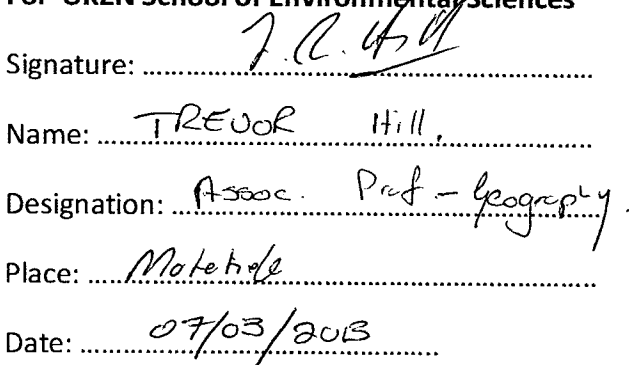 For UKZN School of Environmental Sciences
Signature: T.R. Hill
Name: TREVOR Hill.
Designation: Assoc. Prof - Geography.
Place:
Date: 07/03/2013